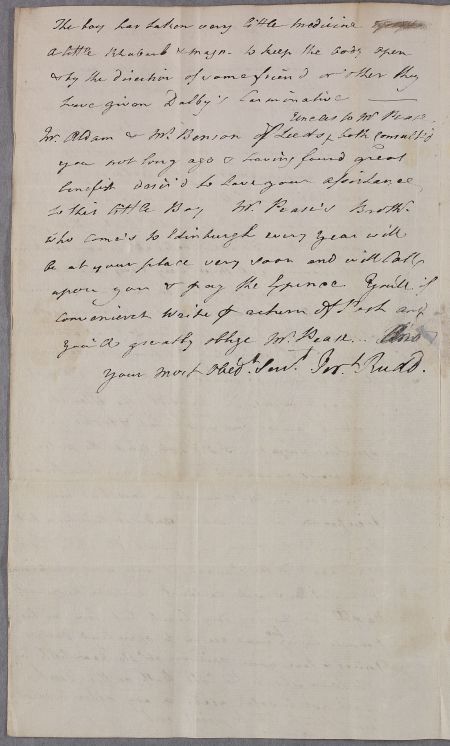 The boy has taken very little medicine
a little Rhubarb & magn. to keep the body open
& by the direction of some friend or other they
have given Dalby's Carminative
Uncles to Mr. Pease,
Mr. Aldam & Mr. Benson of Leeds, both consult'd
you not long ago & having found great
benefit desir'd to have your assistance
to this little Boy Mr. Pease's Broth.
who comes to Edinburgh every year will
be at your place very soon and will call
upon you & pay the Expence You'll if
convenient write p return of Post and
you'll greatly oblige Mr. Pease And
your most Obedt. Servt. Jert. Rudd.